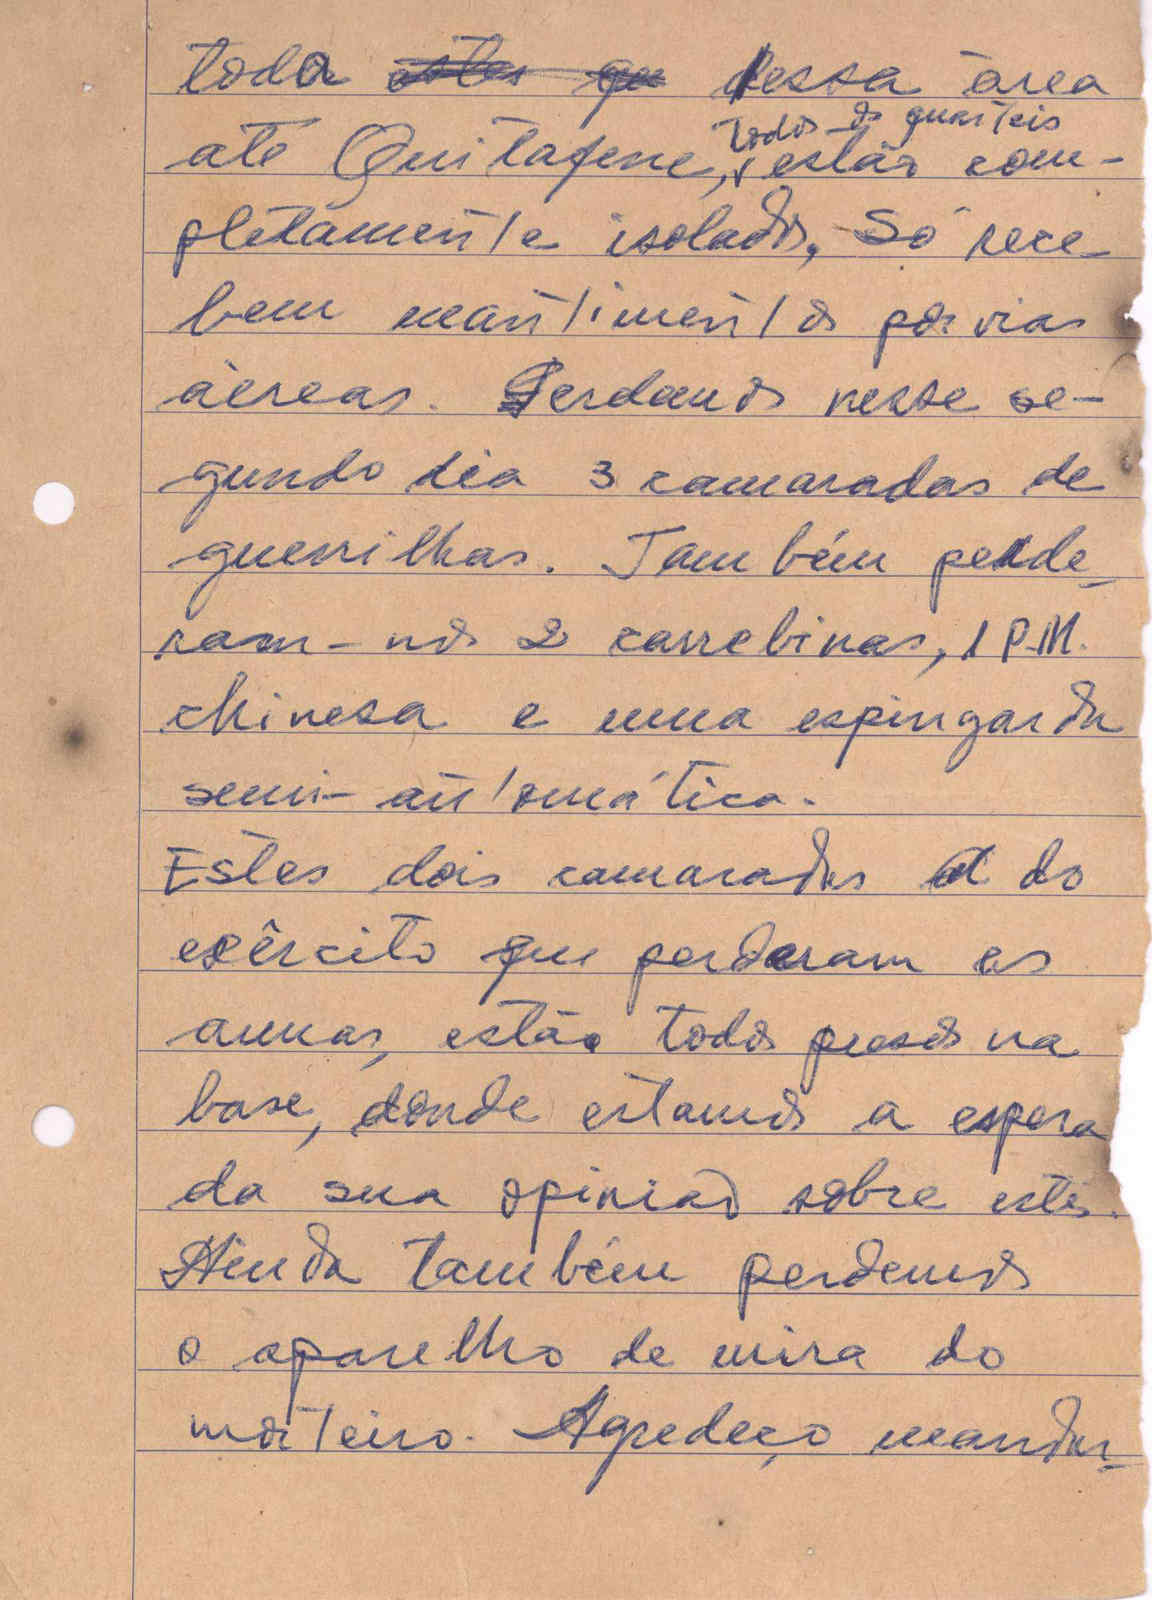 toda estes que dessa àrea
até Quitafene, todos os quarteis estão com-
pletamente isolados, Só rece-
bem mantimentos por vias
àereas. Perdemos nesse se-
gundo dia 3 camaradas de
guerrilhas. Também perde-
ram-nos 2 carrebinas, 1 P.M.
chinesa e uma espingarda
semi-automática.
Estes dois camaradas do
exêrcito que perderam as
armas, estão todos presos na
base, donde estamos a espera
da sua opinião sobre estes.
Ainda também perdemos
o aparelho de mira do
morteiro. Agredeço mandar-